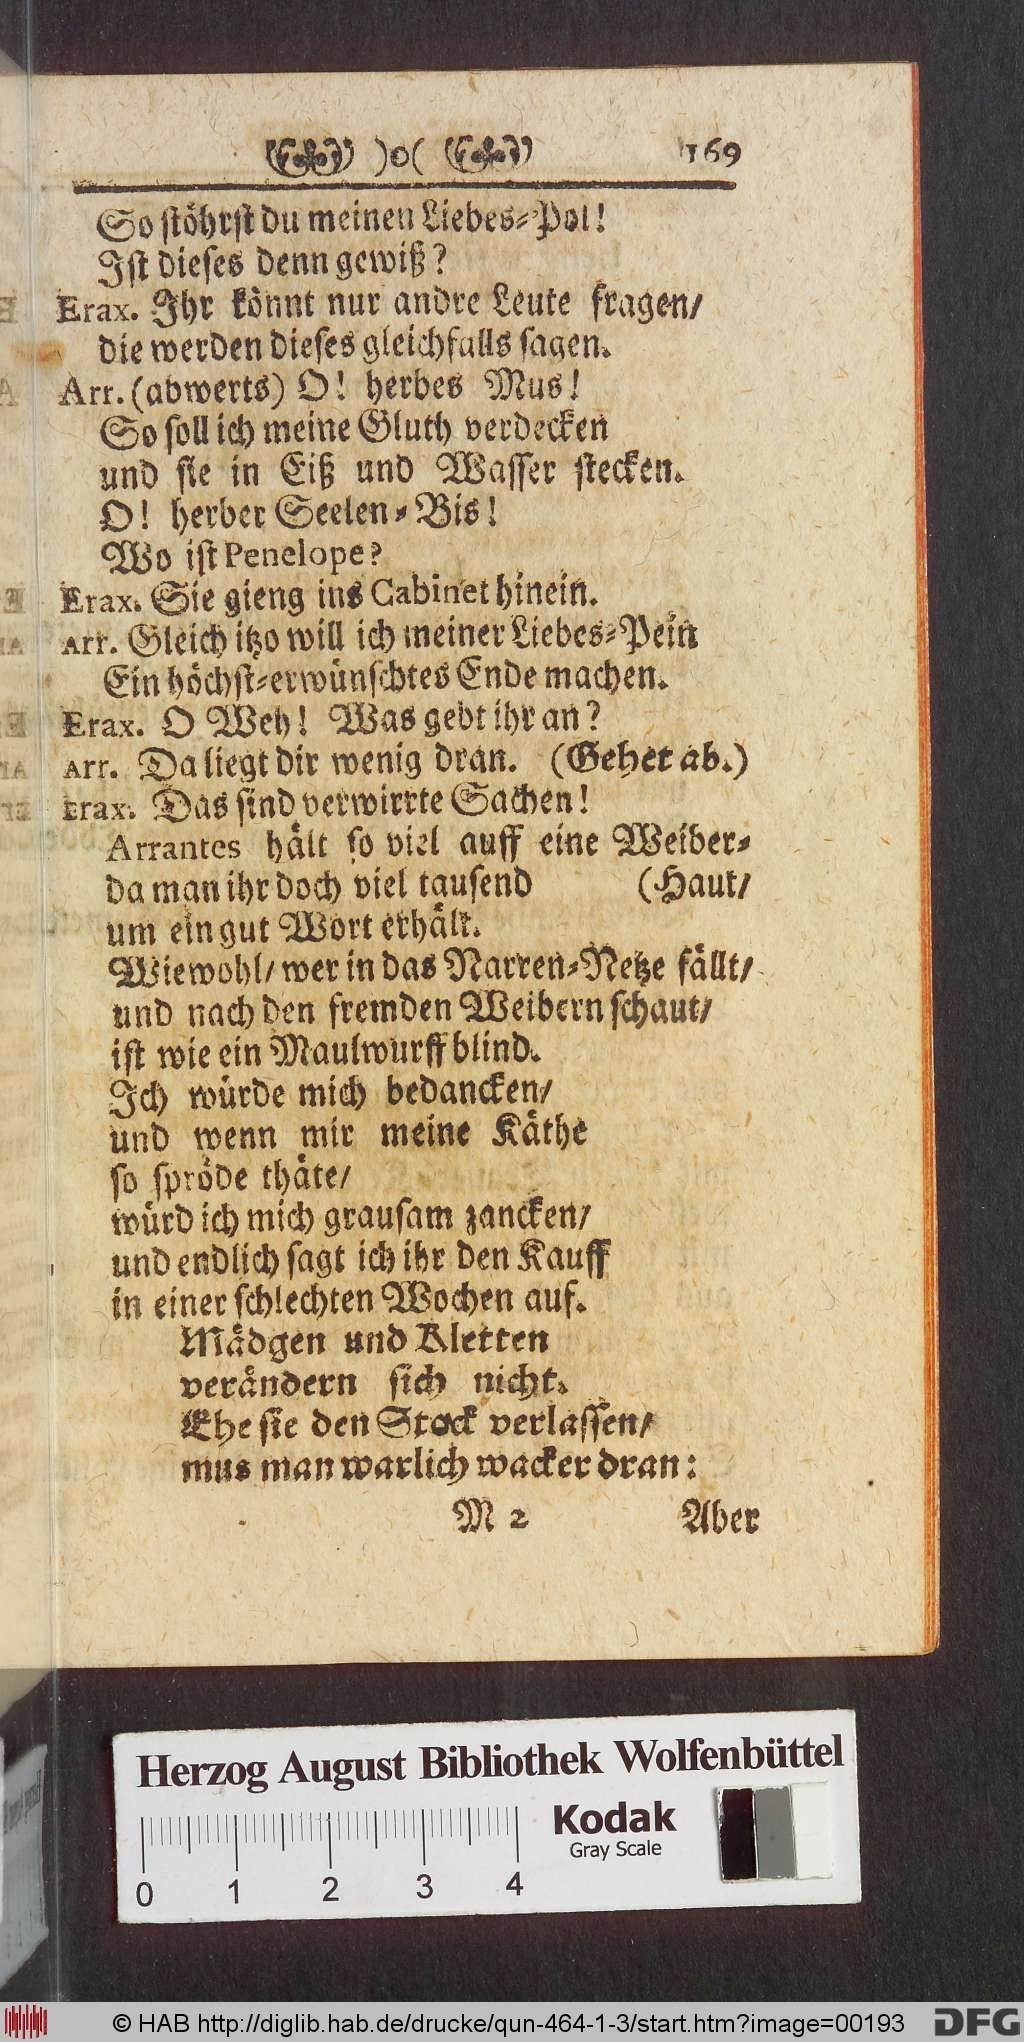 )o( 169
So stöhrst du meinen Liebes-Pol!
Ist dieses denn gewiß?
Erax. Ihr könnt nur andre Leute fragen/
die werden dieses gleichfalls sagen.
Arr. (abwerts) O! herbes Mus!
So soll ich meine Gluth verdecken
und sie in Eiß und Wasser stecken.
O! herber Seelen-Bis!
Wo ist Penelope?
Erax. Sie gieng ins Cabinet hinein.
Arr. Gleich itzo will ich meiner Liebes-Pein
Ein höchst-erwünschtes Ende machen.
Erax. O Weh! Was gebt ihr an?
Arr. Da liegt dir wenig dran. (Gehet ab.)
Erax. Das sind verwirrte Sachen!
Arrantes hält so viel auff eine Weiber-
da man ihr doch viel tausend (Haut/
um ein gut Wort erhält.
Wiewohl/ wer in das Narren-Netze fällt/
und nach den fremden Weibern schaut/
ist wie ein Maulwurff blind.
Ich würde mich bedancken/
und wenn mir meine Käthe
so spröde thäte/
würd ich mich grausam zancken/
und endlich sagt ich ihr den Kauff
in einer schlechten Wochen auf.
Mädgen und Kletten
verändern sich nicht.
Ehe sie den Stock verlassen/
mus man warlich wacker dran:
M 2 Aber
Herzog August Bibliothek Wolfenbüttel
Kodak
Gray Scale
0 1 2 3 4
© HAB http://diglib.hab.de/drucke/qun-464-1-3/start.htm?image=00193 DFG